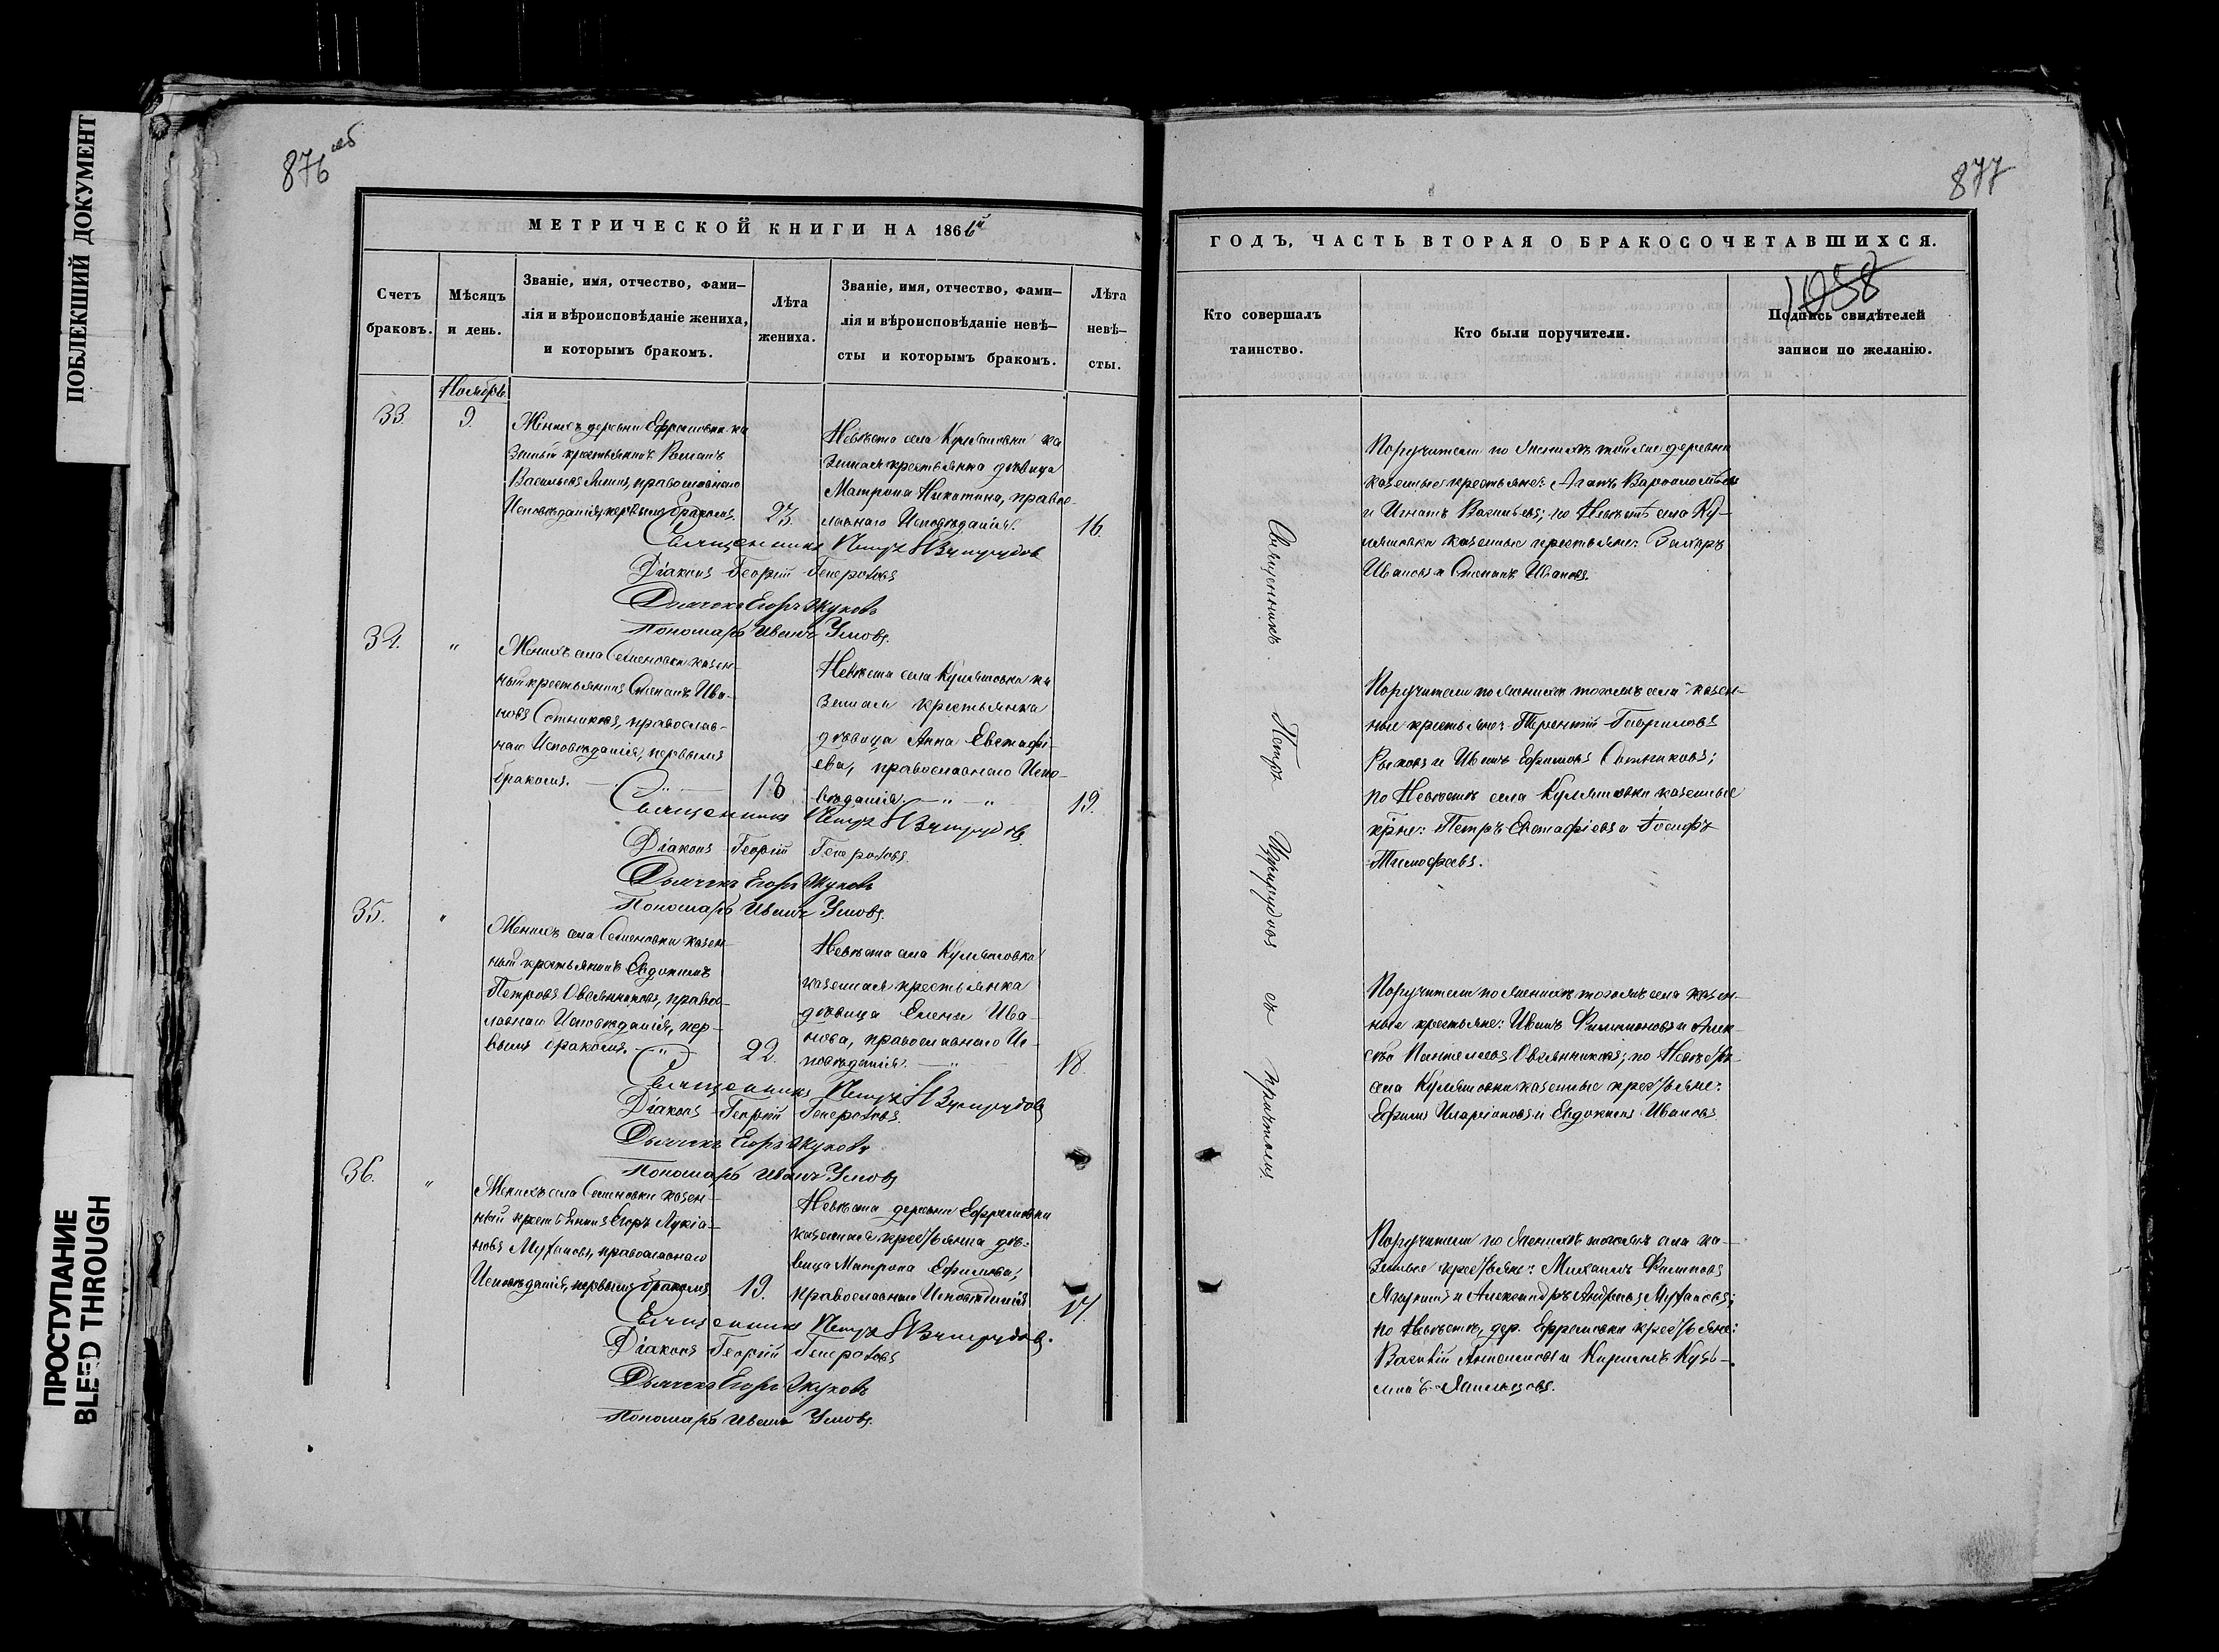 ПОБЛЕКШИЙ ДОКУМЕНТ
ПРОСТУПАНИЕ
BLEED THROUGH
876 об
МЕТРИЧЕСКОЙ КНИГИ НА 1866й
Счетъ браковъ.
Мѣсяцъ и день.
Званіе, имя, отчество, фами-
лія и вѣроисповѣданіе жениха,
и которымъ бракомъ.
Лѣта жениха.
Званіе, имя, отчество, фами-
лія и вѣроисповѣданіе невѣ-
сты и которымъ бракомъ.
Лѣта невѣ-
сты.
Ноябрь
33.
9.
Женихъ деревни Ефремовки ка
зенный крестьянинъ Романъ
Васильевъ православнаго
Исповѣданія, первымъ бракомъ.
23.
Невѣста села Куляшовки ка
зенная крестьянка дѣвица
Матрона Никитина, правос-
лавнаго Исповѣданія.
16.
Священникъ Петръ
Діаконъ Георгій Генерозовъ
Дьячекъ Егоръ Жуковъ
Пономарь Иванъ Умовъ.
34.
"
Женихъ села Семеновки казен-
ный крестьянинъ Степанъ Ива-
новъ Сотниковъ, православ-
наго Исповѣданія, первымъ
бракомъ.
18
Невѣста села Куляшовки ка
зенная крестьянка
дѣвица Анна Евстафі-
ева, православнаго Испо-
вѣданія. " "
19.
Священникъ Петръ
Діаконъ Георгій Генерозовъ.
Дьячекъ Егоръ Жуковъ
Пономарь Иванъ Умовъ.
35.
"
Женихъ села Семеновки казен-
ный крестьянинъ Евдокимъ
Петровъ Овсянниковъ, правос-
лавнаго Исповѣданія, пер-
вымъ бракомъ. "
22.
Невѣста села Куляшовки
казенная крестьянка
дѣвица Елена Ива-
нова, православнаго Ис-
повѣданія. "
18.
Священникъ Петръ
Діаконъ Георгій Генерозовъ.
Дьячекъ Егоръ Жуковъ
Пономарь Иванъ Умовъ
36.
"
Женихъ села Семеновки казен-
ный крестьянинъ Егоръ Лукіа-
новъ православнаго
Исповѣданія, первымъ бракомъ
19.
Невѣста деревни Ефремовки
казенная крестьянка дѣ-
вица Матрона Ефимова,
православнаго Исповѣданія
17.
Священникъ Петръ
Діаконъ Георгій Генерозовъ
Дьячекъ Егоръ Жуковъ
Пономарь Иванъ Умовъ.
877
ГОДЪ, ЧАСТЬ ВТОРАЯ О БРАКОСОЧЕТАВШИХСЯ.
1058
Кто совершалъ
таинство.
Кто были поручители.
Подпись свидѣтелей
записи по желанію.
Священникъ Петръ съ причтомъ.
Поручители по женихѣ той же деревни
казенные крестьяне: Агапъ Варѳоломѣевъ
и Игнатъ Васильевъ; по Невѣстѣ села Ку-
ляшовки казенные крестьяне: Захаръ
Ивановъ и Степанъ Ивановъ.
Поручители по женихѣ тогожъ села казен-
ные крестьяне: Терентій Гавриловъ
Рыковъ и Иванъ Ефимовъ Сотниковъ;
по Невѣстѣ села Куляшовки казенные
кр̃не: Петръ Евстафіевъ и Іосифъ
Тимофеевъ.
Поручители по женихѣ тогожъ села казен-
ные крестьяне: Иванъ Филимоновъ и Алек-
сѣй Пантелеевъ Овсянниковъ; по Невѣстѣ
села Куляшовки казенные крестьяне:
Ефимъ Иларіоновъ и Евдокимъ Ивановъ
Поручители по женихѣ тогожъ села ка-
зенные крестьяне: Михаилъ Филиповъ
и Александръ Андреевъ
по Невѣстѣ, дер. Ефремовки крестьяне:
Василій и Кирилъ Кузь-
минъ